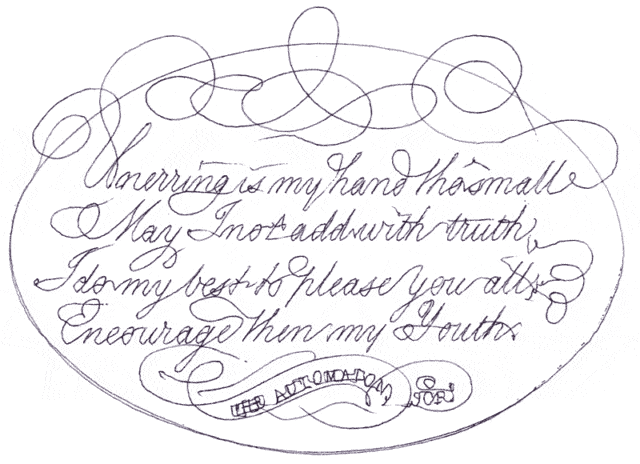 Unerring is my hand tho' small
May I not add with truth
I do my best to please you all
Encourage then my Youth.
THE AUTOMATON